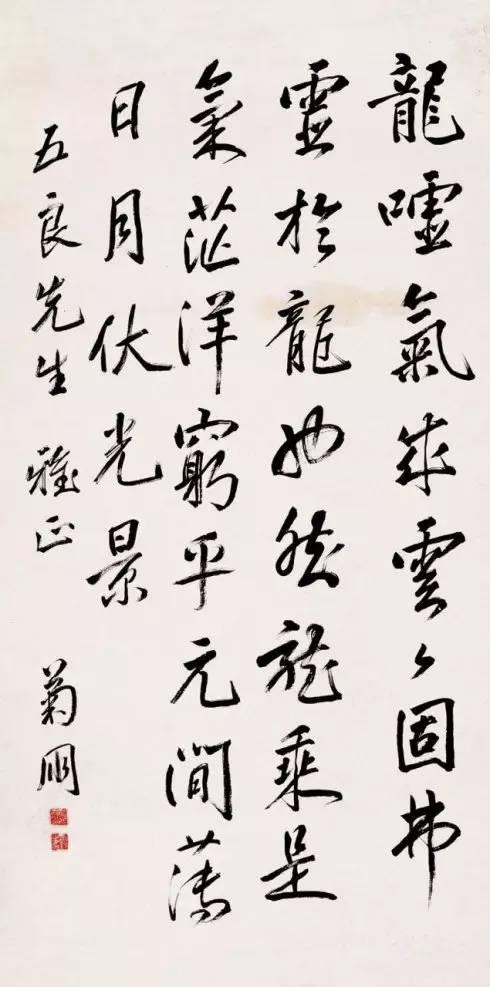 龍噓氣成雲〻固弗
靈於龍也然龍乘是
氣茫洋窮乎元間薄
日月伏光景
五良先生 雅正 菊朋